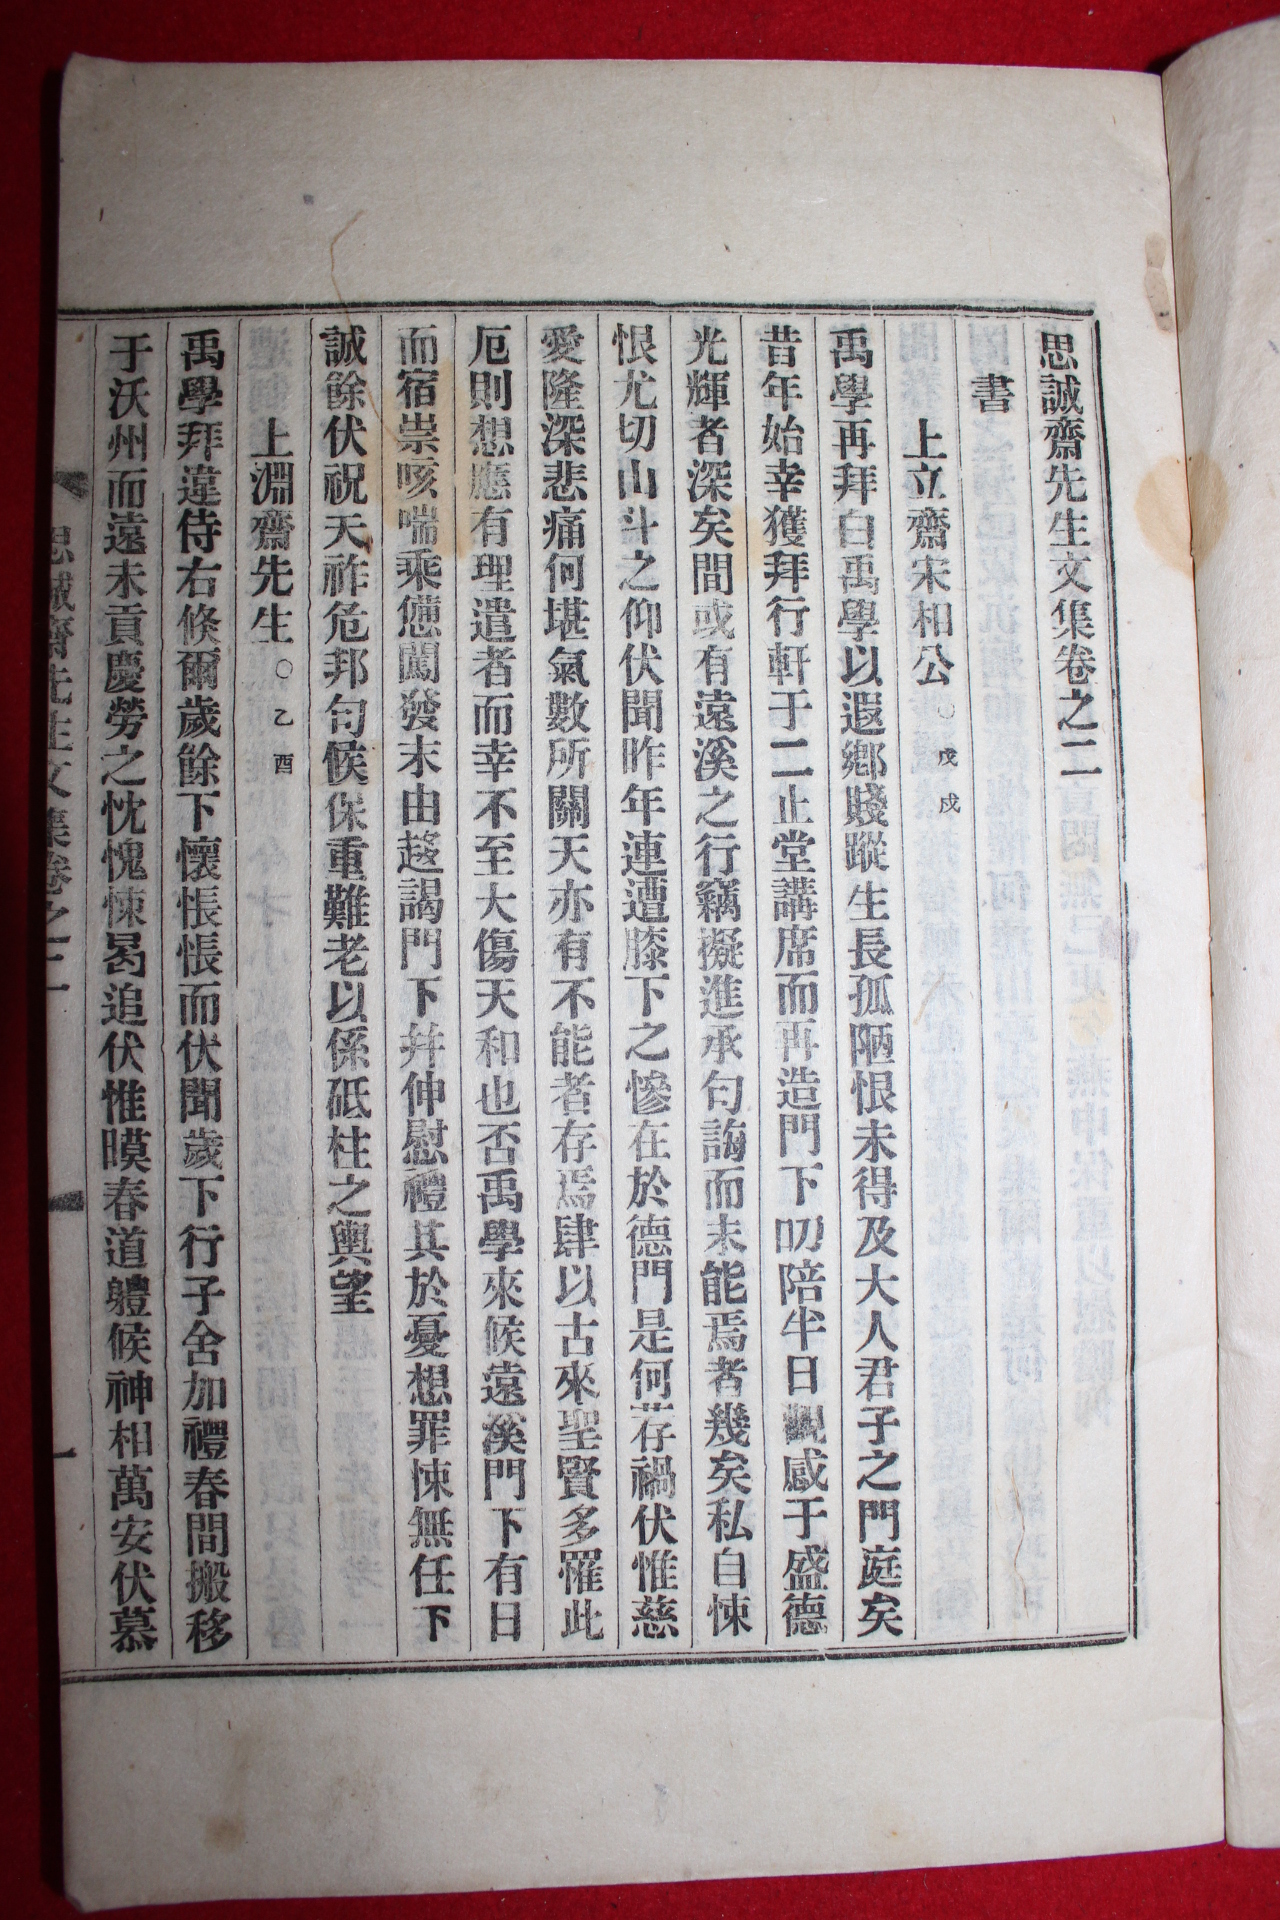 思誠齋先生文集卷之二
書
上立齋宋相公○戊戌
禹學再拜白禹學以遐鄕賤蹤生長孤陋恨未得及大人君子之門庭矣
昔年始幸獲拜行軒于二止堂講席而再造門下叨陪半日觀感于盛德
光輝者深矣間或有遠溪之行竊擬進承句誨而未能焉者幾矣私自悚
恨尤切山斗之仰伏聞昨年連遭膝下之慘在於德門是何荐禍伏惟慈
愛隆深悲痛何堪氣數所關天亦有不能者存焉肆以古來聖賢多罹此
厄則想應有理遣者而幸不至大傷天和也否禹學來候遠溪門下有日
而宿祟咳喘乘憊闖發末由趍謁門下幷伸慰禮其於憂想罪悚無任下
誠餘伏祝天祚危邦句候保重難老以係砥柱之輿望
上淵齋先生○乙酉
禹學拜違侍右倏爾歲餘下懷悵悵而伏聞歲下行子舍加禮春間搬移
于沃州而遠未貢慶勞之忱愧悚曷追伏惟暯春道軆候神相萬安伏慕
思誠齋先生文集卷之二
一